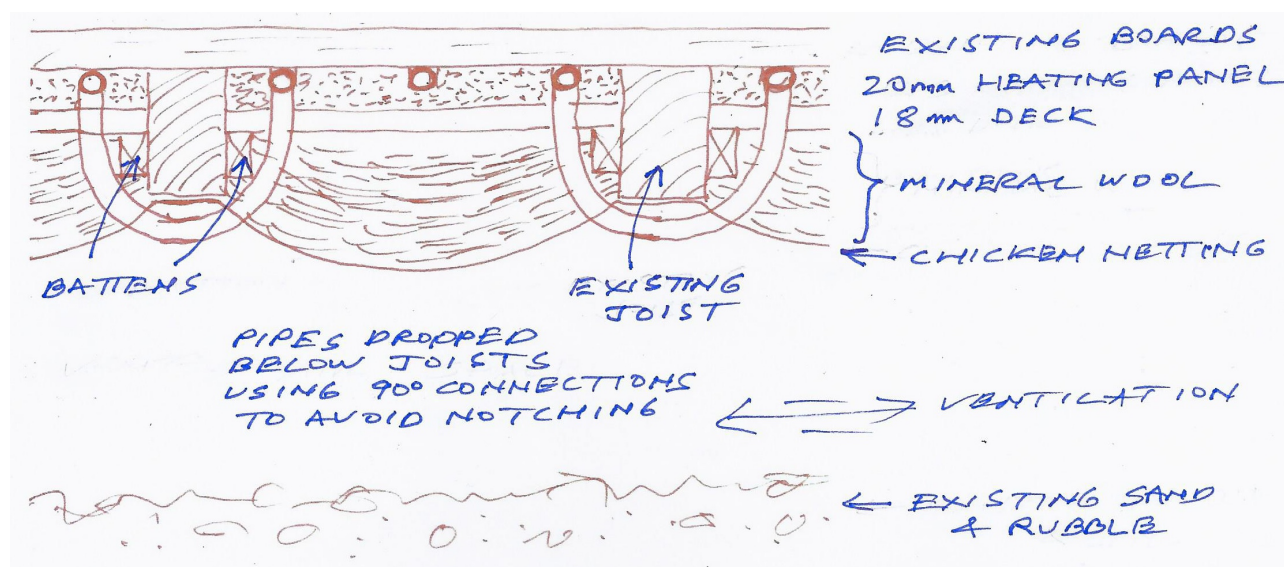 EXISTING BOARDS
20mm HEATING PANEL
18mm DECK
MINERAL WOOL
CHICKEN NETTING
BATTENS
EXISTING
JOIST
PIPES DROPPED
BELOW JOISTS
USING 90° CONNECTIONS
TO AVOID NOTCHING
VENTILATION
EXISTING SAND
& RUBBLE